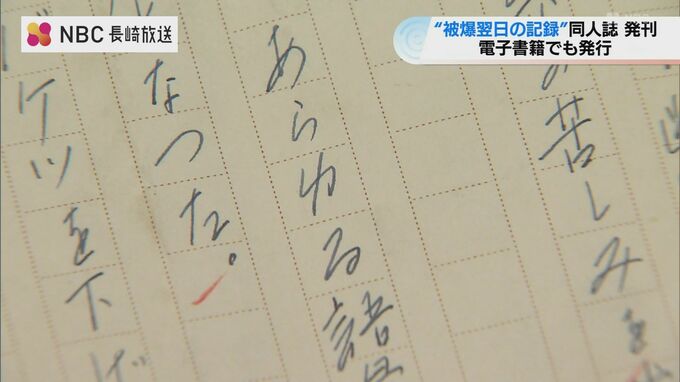 NBC 長崎放送
“被爆翌日の記録”同人誌 発刊
電子書籍でも発行
の苦しみを
あらゆる諸
なつた。
バケツを下げ